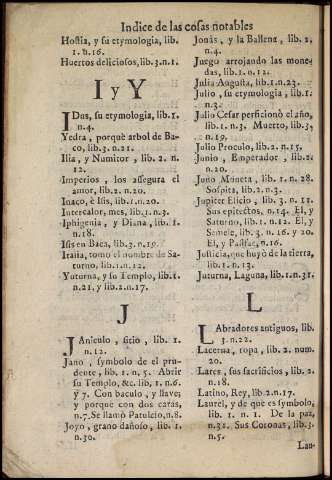 Indice de las cosas notables
Hostia, y su etymologia, lib.
1. n.16.
Huertos deliciosos, lib.3.n.1.
I y Y
IDus, su etymologia, lib.1.
n.4.
Yedra, porquè arbol de Ba-
co, lib.3. n.21.
Ilia, y Numitor, lib. 2. n.
12.
Imperios, los assegura el
amor, lib.2. n.20.
Inaco, è Isis, lib.1. n.20.
Intercalor, mes, lib.1. n.3.
Iphigenia, y Diana, lib. 1.
n.18.
Isis en Baca, lib.3. n.19.
Italia, tomo el nombre de Sa-
turno, lib.1. n.12.
Yuturna, y su Templo, lib.1.
n.21. y lib.2.n.17.
J
JAniculo, sitio, lib. 1.
n.12.
Jano, symbolo de el pru-
dente, lib. 1. n. 5. Abrir
su Templo, &c. lib. 1. n.6.
y 7. Con baculo, y llave;
y porquè con dos caras,
n.7. Se llamò Patulcio, n.8.
Joyo, grano dañoso, lib. 1.
n.30.
Jonàs, y la Ballena, lib. 2.
n.4.
Juego arrojando las mone-
das, lib. 1. n. 12.
Julia Augusta, lib.1.n.23.
Julio, su etymologia, lib. 1.
n.3.
Julio Cesar perficionò el año,
lib. 1. n.3. Muerto, lib.3.
n.19.
Julio Proculo, lib. 2. n.15.
Junio, Emperador, lib. 2.
n.20.
Juno Moneta, lib. 1. n. 28.
Sospita, lib.2. n.3.
Jupiter Elicio, lib. 3. n. 11.
Sus epitectos, n.14. El, y
Saturno, lib. 1. n.12. El, y
Semele, lib.3. n.16. y 20.
El, y Pasifae, n.16.
Justicia, que huyò de la tierra,
lib. 1. n. 13.
Juturna, Laguna, lib.1.n.31.
L
LAbradores antiguos, lib.
3. n.22.
Lacerna, ropa, lib. 2. num.
20.
Lares, sus sacrificios, lib. 2.
n.18.
Latino, Rey, lib.2.n.17.
Laurel, y de què es symbolo,
lib. 1. n. 1. De la paz,
n.31. Sus Coronas, lib.3.
n.5.
Lau-